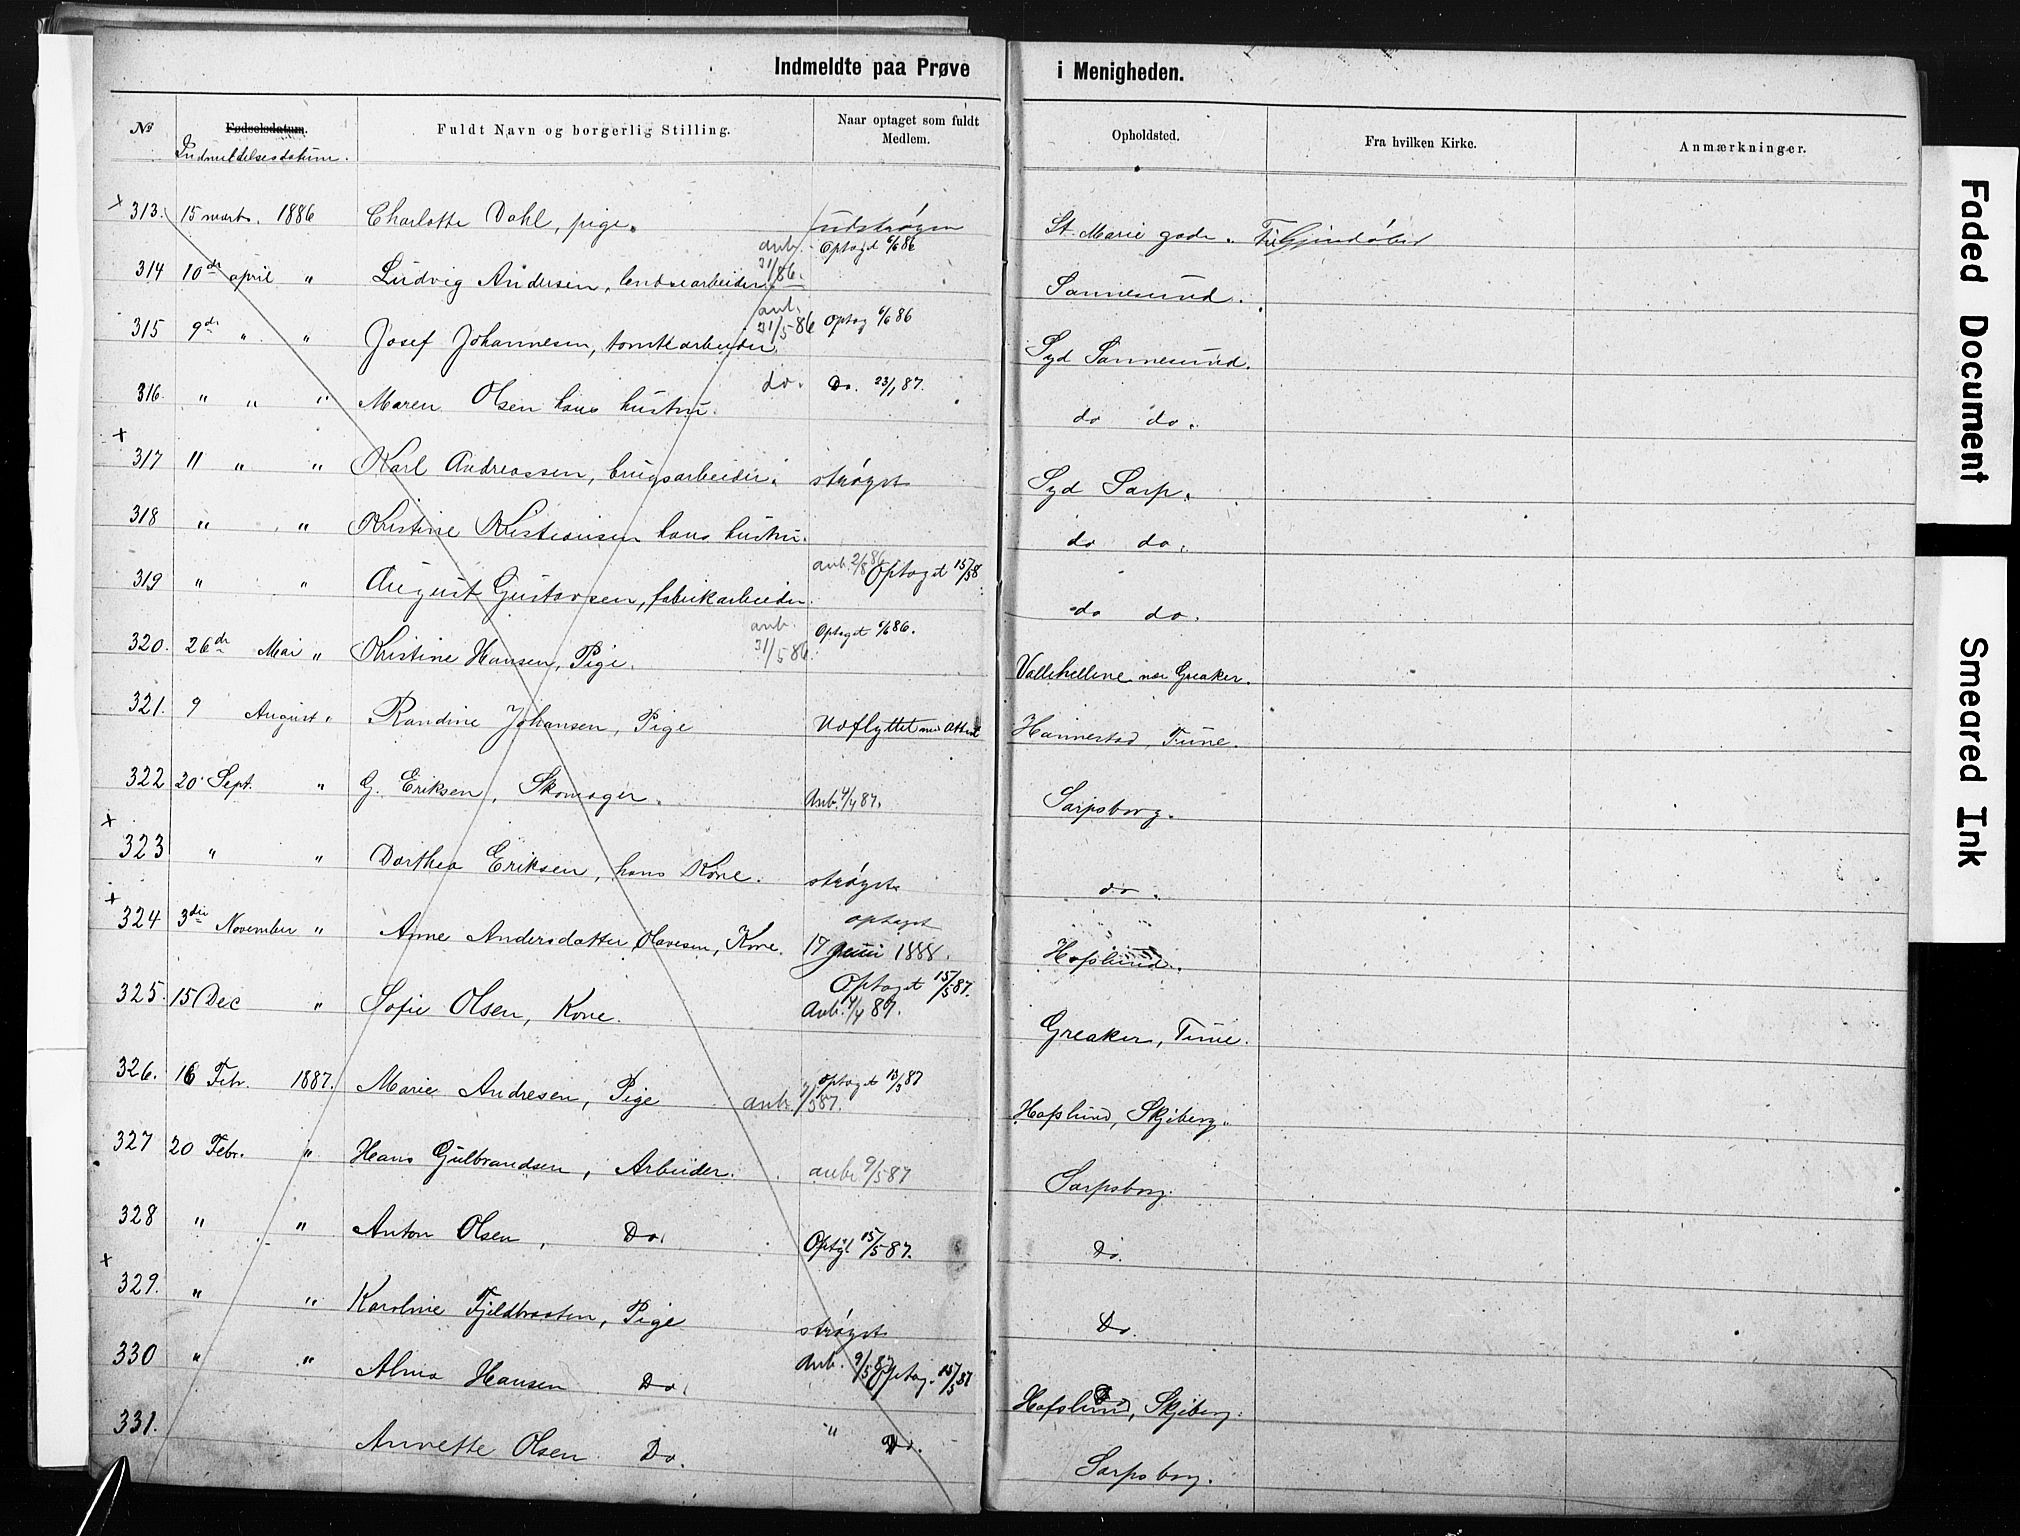 Indmeldte paa Prøve i Menigheden.
№ Fødselsdatum. Fuldt Navn og borgerlig Stilling. Naar optaget som fuldt Medlem. Opholdsted. Fra hvilken Kirke. Anmærkninger.
Indmeldelsesdatum.
x 313. 15 marts. 1886 Charlotte Dahl, pige. udstrøgen St. Marie gade.
314 10de april " Ludvig Andersen, lendsearbeider anb. 31/86. Optagd 6/6 86 Sannesund.
315 9de " " Josef Johannesen, tomtearbeider. anb. 31/5 86 Optag 6/6 86 Syd Sannesund.
316. " " " Maren Olsen hans hustru. do. Do. 23/1 87. do do.
x 317 11 " " Karl Andreassen, brugsarbeider. strøget Syd Sarp.
318 " " Kristine Kristiansen hans hustru. do do.
319 " " August Gustavsen, fabrikarbeider. anb. 2/8 86 Optaget 15/5 8 do do.
320. 26de Mai " Kristine Hansen, Pige. anb. 31/5 86. Optaget 6/6 86. Vallehellene nær Greaker.
321. 9 August " Randine Johansen, Pige Udflyttet med Attest Hannestad, Tune.
322 20 Sept. " G. Eriksen, Skomager. Anb. 4/4 87. Sarpsborg.
x 323 " " Dorthea Eriksen, hans Kone. strøget do.
x 324 3die November " Anne Andersdatter Olavesen, Kone. optaget 17 Juni 1888. Hafslund.
325. 15 Dec " Sofie Olsen, Kone. Optaget 15/5 87. Anb. 4/4 87. Greaker, Tune.
326. 16 Febr. 1887. Marie Andresen, Pige anb. 9/5 87. optaget 15/5 87 Hafslund, Skjeberg.
327 20 Febr. " Hans Gulbrandsen, Arbeider. anb 9/5 87 Sarpsborg.
328 " " Anton Olsen, Do. Optgt 15/5 87. Do.
x 329. " " Karoline Fjeldbraaten, Pige strøget Do.
330 " " Alma Hansen Do. Anb. 9/5 87 Optag. 15/5 87 Hafslund, Skjeberg.
331. Annette Olsen Do. " Do. Sarpsborg.
Faded Document
Smeared Ink